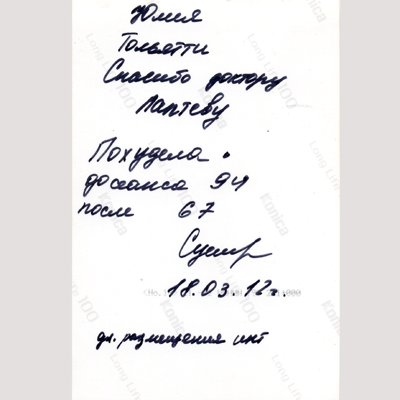 Юлия
Тольятти
Спасибо доктору
Лаптеву
Похудела.
до сеанса 94
после 67
18.03.12г.
дл. размещения инт